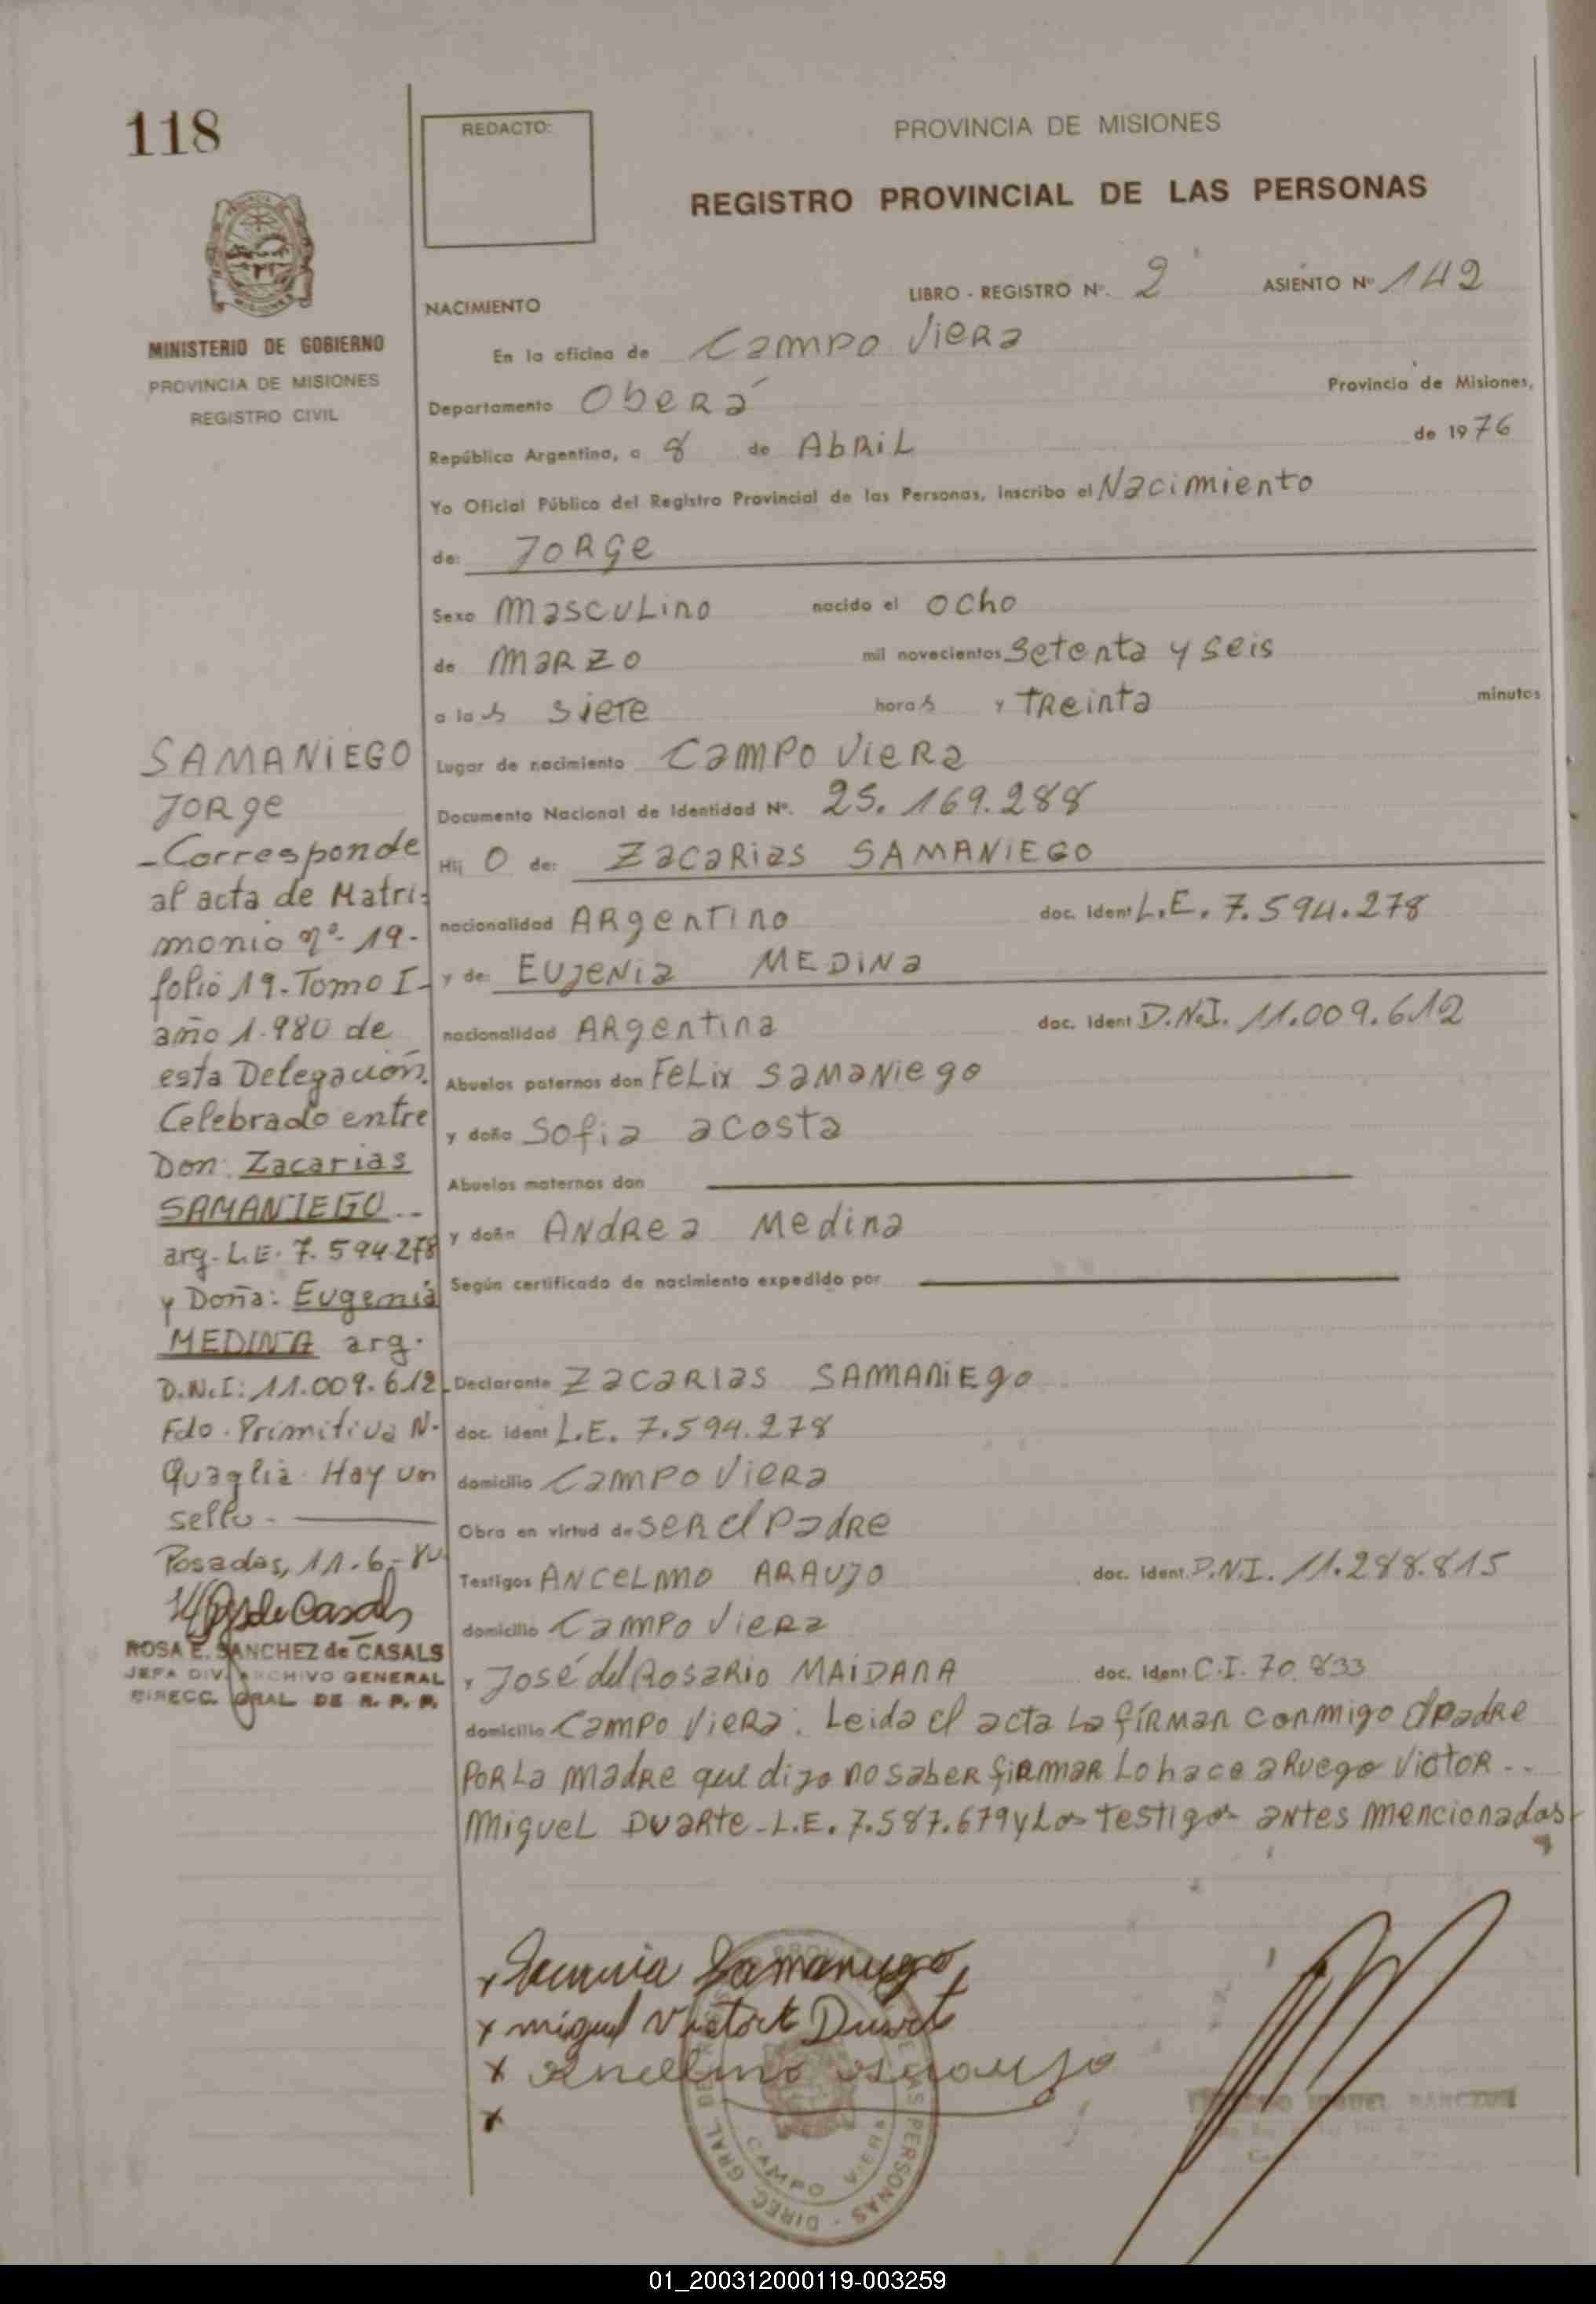 118
REDACTO:
PROVINCIA DE MISIONES
REGISTRO PROVINCIAL DE LAS PERSONAS
MINISTERIO DE GOBIERNO
PROVINCIA DE MISIONES
REGISTRO CIVIL
NACIMIENTO
LIBRO - REGISTRO Nº. 2 ASIENTO Nº 142
En la oficina de Campo Viera
Departamento Oberá Provincia de Misiones,
República Argentina, a 8 de Abril de 1976
Yo Oficial Público del Registro Provincial de las Personas, inscribo el Nacimiento
de: Jorge
Sexo Masculino nacido el ocho
de Marzo mil novecientos setenta y seis
a las siete horas y treinta minutos
Lugar de nacimiento Campo Viera
Documento Nacional de Identidad Nº. 25.169.288
Hijo de: Zacarias SAMANIEGO
nacionalidad Argentino doc. ident L.E. 7.594.278
y de: Eujenia MEDINa
nacionalidad Argentina doc. ident D.N.I. 11.009.612
Abuelos paternos don Felix Samaniego
y doña Sofia acosta
Abuelos maternos don
y doña Andrea Medina
Según certificado de nacimiento expedido por
Declarante Zacarias SAMANiEgo
doc. ident L.E. 7.594.278
domicilio Campo Viera
Obra en virtud de ser el Padre
Testigos ANCELMO ARAUJO doc. ident. D.N.I. 11.288.815
domicilio Campo Viera
y José del Rosario MAIDANA doc. ident. C.I. 70.833
domicilio Campo Viera. Leida el acta La firman conmigo el Padre
Por La madre que dijo no saber firmar Lo hace a Ruego Victor..
Miguel Duarte-L.E. 7.587.679 y Los testigos antes mencionados
SAMANiEGO
Jorge
-Corresponde
al acta de Matri-
monio nº- 19-
folio 19-Tomo I-
año 1.980 de
esta Delegación.
Celebrado entre
Don: Zacarias
SAMANIEGO..
arg. L.E. 7.594.278
y Doña: Eugenia
MEDINA arg.
D.N.I: 11.009.612
Fdo. Primitiva N.
Quaglia Hay un
sello-
Posadas, 11-6-80
ROSA E. SANCHEZ de CASALS
JEFA DIV. ARCHIVO GENERAL
DIRECC. GRAL DE R. P. P.
x Samaniego
x miguel Victor Duarte
x Ancelmo Araujo
x
DIREC. GRAL DE
LAS PERSONAS
CAMPO VIERA
01_200312000119-003259